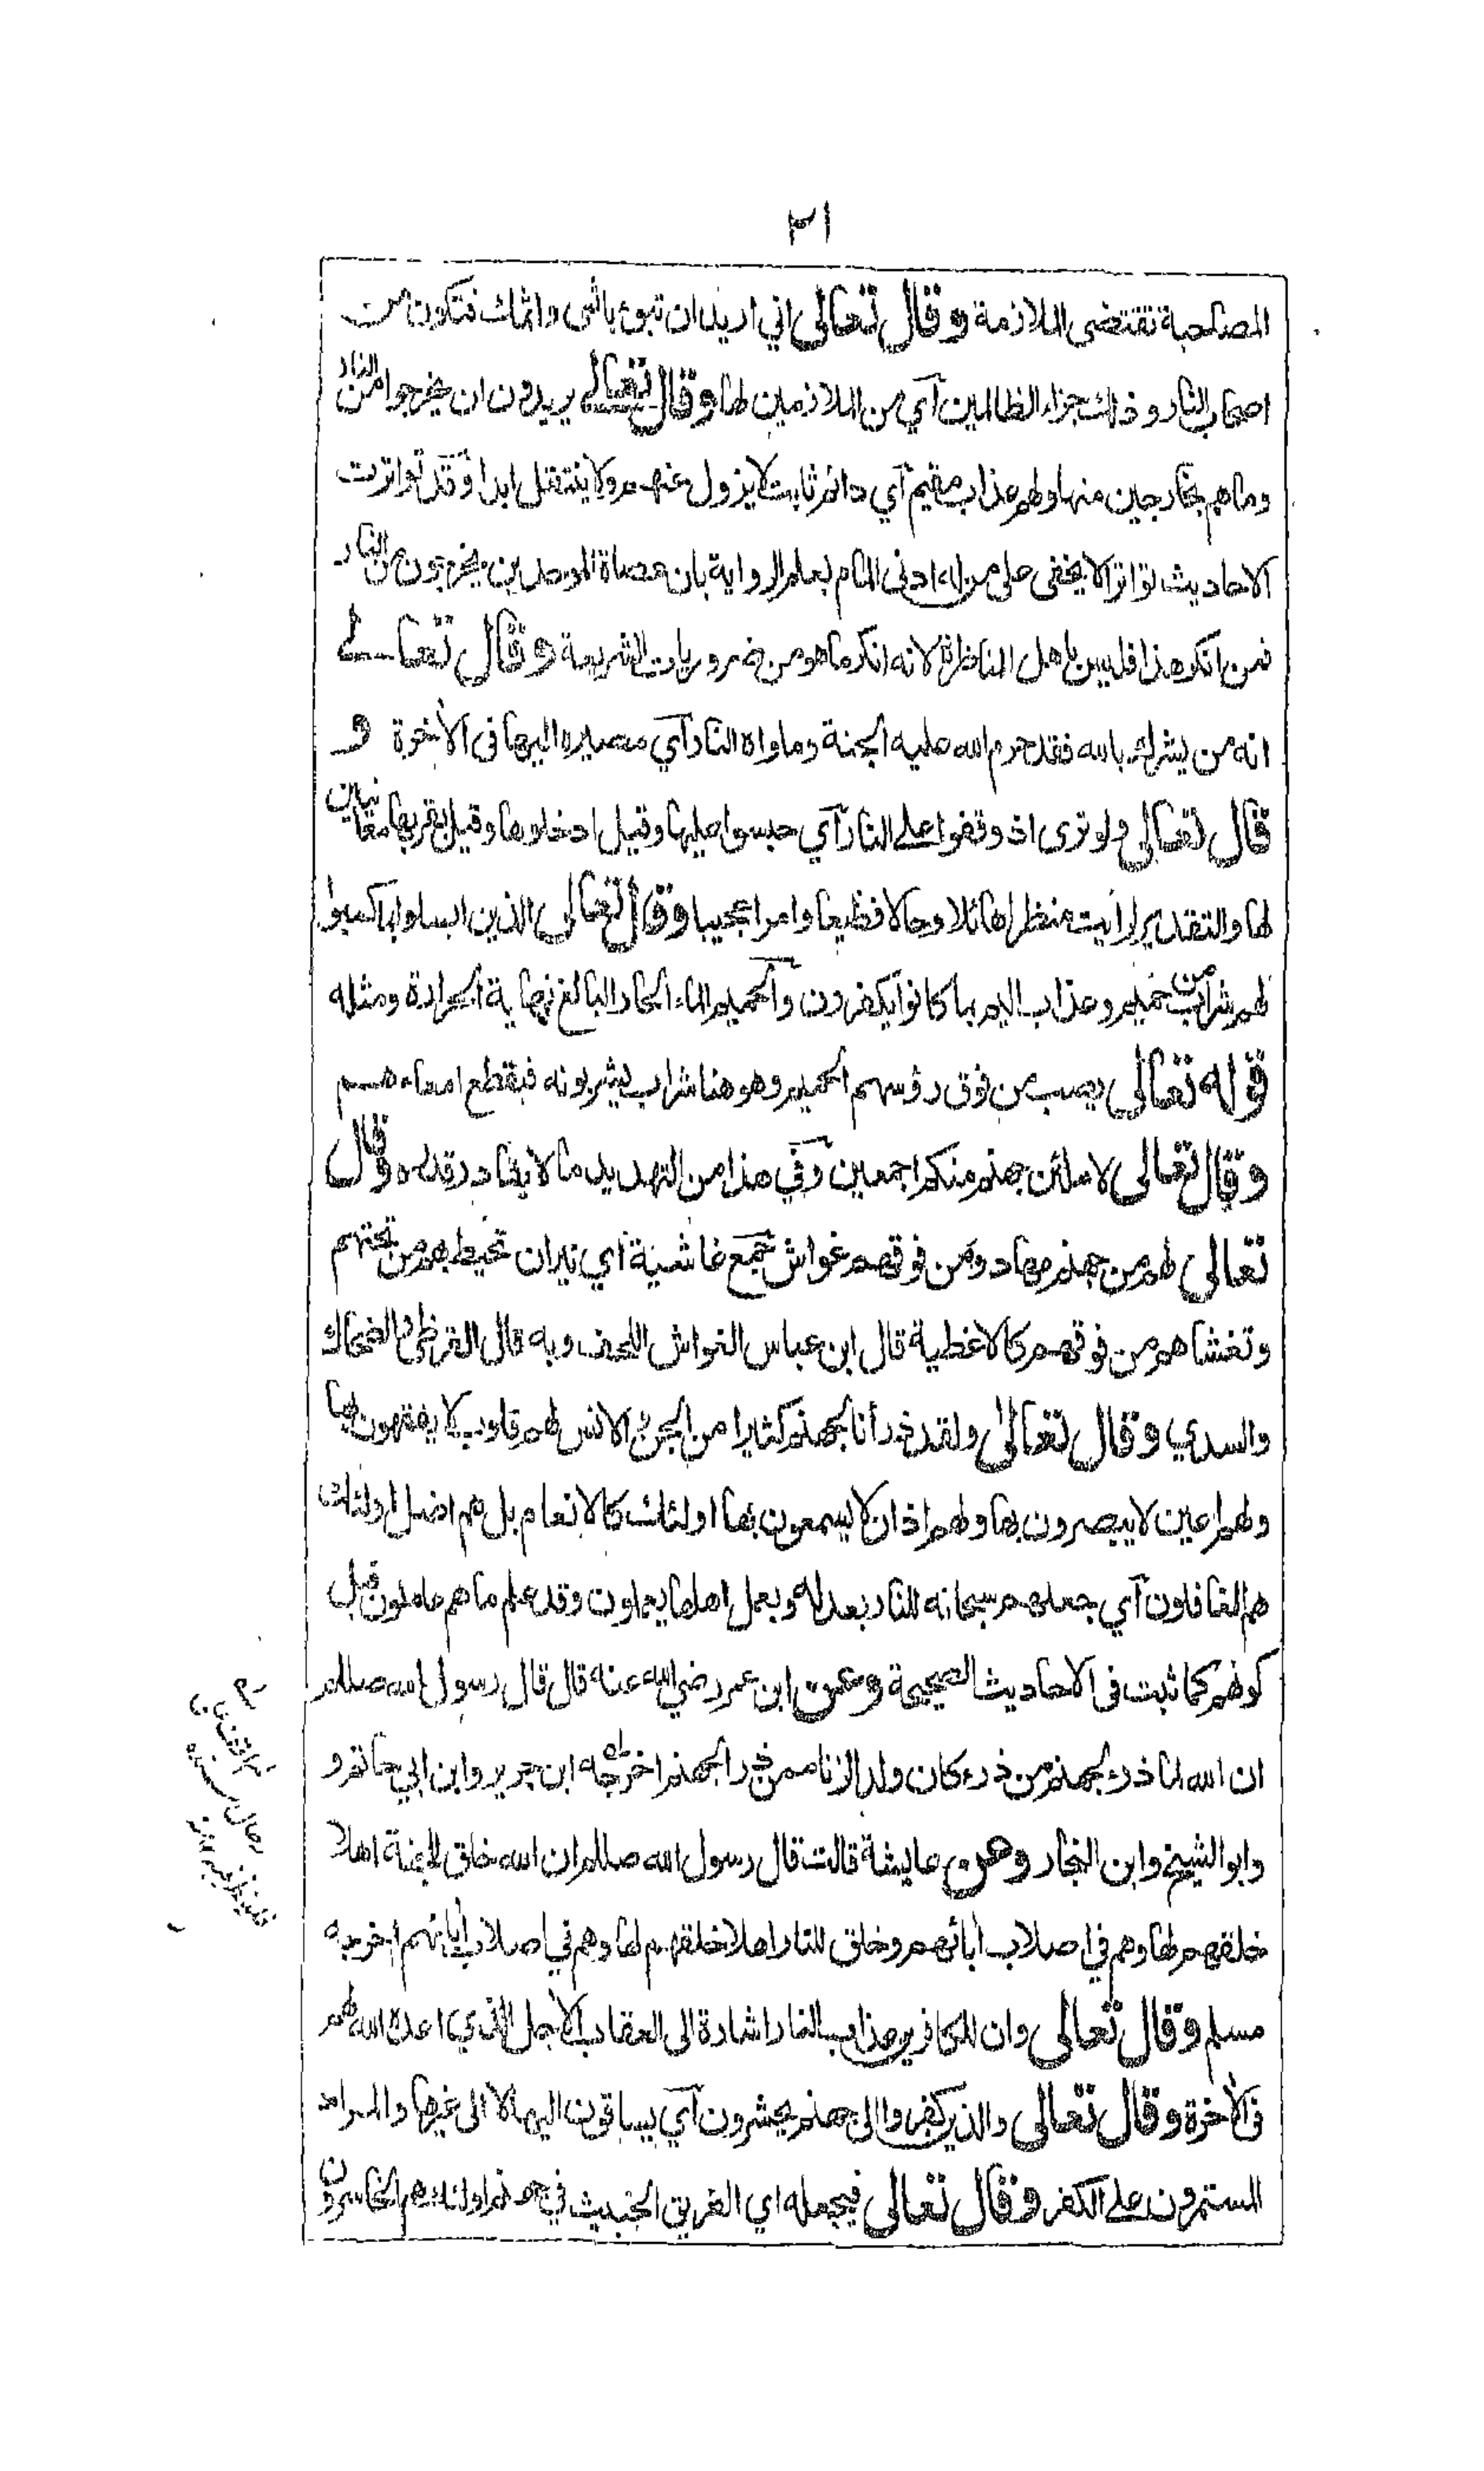 ٣١
المصاحبة تقتضى الملازمة وقال تعالى اني اريد ان تبوء باثمى واثمك فتكون من
اصحاب النار وذلك جزاء الظالمين آي من الملازمين لها وقال تعالى يريدون ان يخرجوا من النار
وما هم بخارجين منها ولهم عذاب مقيم آي دائم ثابت لا يزول عنهم ولا ينتقل ابدا وقد تواترت
الاحاديث تواترا لا يخفى على من له ادنى المام بعلم الرواية بان عصاة الموحدين يخرجون من النار
فمن انكر هذا فليس باهل المناظرة لانه انكر ما هو من ضروريات الشريعة وقال تعالى
انه من يشرك بالله فقد حرم الله عليه الجنة وماواه النار آي مصيره اليها فى الآخرة و
قال تعالى ولو ترى اذ وقفوا على النار آي حبسوا عليها وقيل ادخلوها وقيل بقربها معاينين
لها والتقدير لرأيت منظرا هائلا وحالا فظيعا وامرا عجيبا وقال تعالى الذين ابسلوا بما كسبوا
لهم شراب من حميم وعذاب اليم بما كانوا يكفرون والحميم الماء الحار البالغ نهاية الحرارة ومثله
قوله تعالى يصب من فوق رؤسهم الحميم وهو هنا شراب يشربونه فيقطع امعاءهم
وقال تعالى لاملئن جهنم منكم اجمعين وفي هذا من التهديد ما لا يقادر قدره وقال
تعالى لهم من جهنم مهاد ومن فوقهم غواش جمع غاشية اي نيران تحيط بهم من تحتهم
وتغشاهم من فوقهم كالاغطية قال ابن عباس الغواش اللحف وبه قال القرظي والضحاك
والسدي وقال تعالى ولقد ذرأنا لجهنم كثيرا من الجن والانس لهم قلوب لا يفقهون بها
ولهم اعين لا يبصرون بها ولهم اذان لا يسمعون بها اولئك كالانعام بل هم اضل اولئك
هم الغافلون آي جعلهم سبحانه للنار بعدله وبعمل اهلها يعملون وقد علم ما هم عاملون قبل
كونهم كما ثبت فى الاحاديث الصحيحة وعن ابن عمر رضي الله عنه قال قال رسول الله صللم
ان الله لما ذرء لجهنم من ذرء كان ولد الزنا ممن ذرء لجهنم اخرجه ابن جرير وابن ابي حاتم و
وابو الشيخ وابن النجار وعن عايشة قالت قال رسول الله صللم ان الله خلق للجنة اهلا
خلقهم لها وهم في اصلاب أبائهم وخلق للنار اهلا خلقهم لها وهم في اصلاب أبائهم اخرجه
مسلم وقال تعالى وان للكافرين عذاب النار اشارة الى العقاب الآجل الذي اعده الله لهم
فى الآخرة وقال تعالى والذين كفروا الى جهنم يحشرون آي يساقون اليها لا الى غيرها والمراد
المستمرون على الكفر وقال تعالى فيجعله اي الفريق الخبيث في جهنم اولئك هم الخاسرون